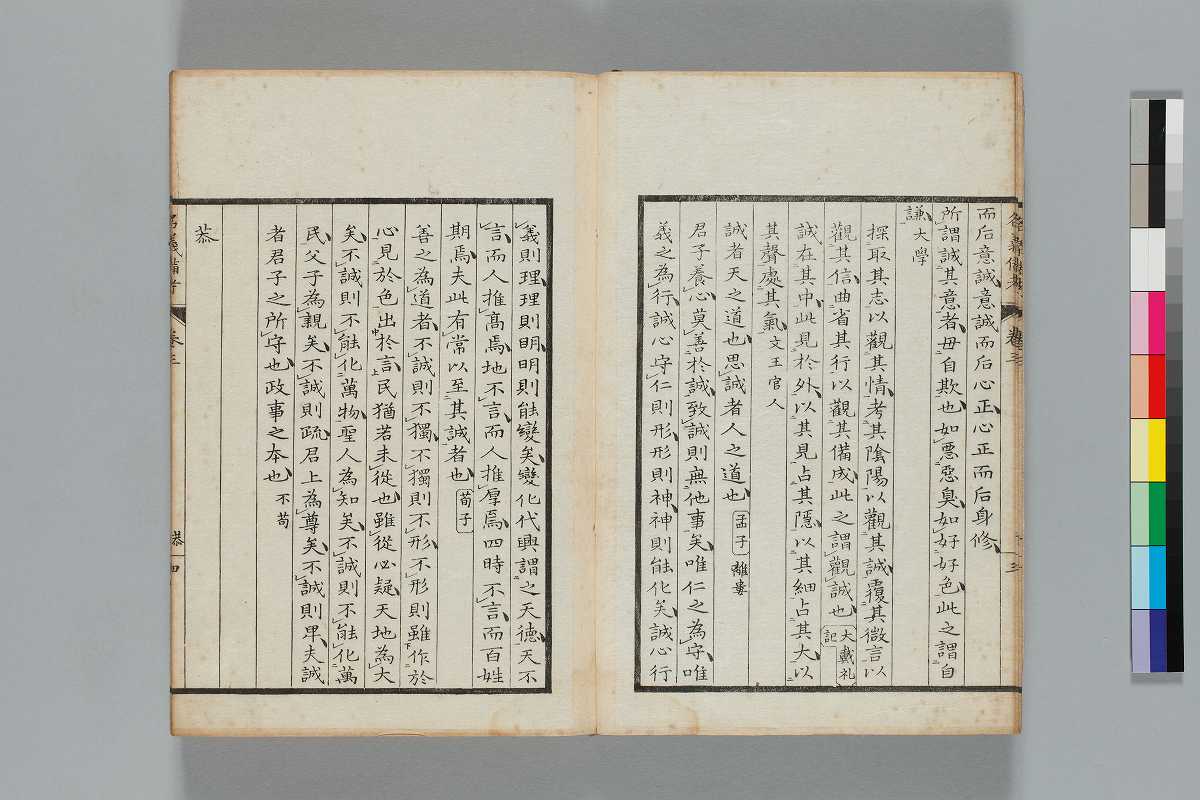 名義備考 卷三
而后意誠意誠而后心正心正而后身修
所謂誠其意者毋自欺也如惡惡臭如好好色此之謂自
謙大學
探取其志以觀其情考其陰陽以觀其誠覆其微言以
觀其信曲省其行以觀其備成此之謂觀誠也大戴礼記
誠在其中此見於外以其見占其隱以其細占其大以
其聲處其氣文王官人
誠者天之道也思誠者人之道也孟子離婁
君子養心莫善於誠致誠則無他事矣唯仁之為守唯
義之為行誠心守仁則形形則神神則能化矣誠心行
義則理理則明明則能變矣變化代興謂之天德天不
言而人推高焉地不言而人推厚焉四時不言而百姓
期焉夫此有常以至其誠者也荀子
善之為道者不誠則不獨不獨則不形不形則雖作於
心見於色出於言民猶若未從也雖從必疑天地為大
矣不誠則不能化萬物聖人為知矣不誠則不能化萬
民父子為親矣不誠則疏君上為尊矣不誠則卑夫誠
者君子之所守也政事之本也不苟
恭
名義備考 卷三 恭 四